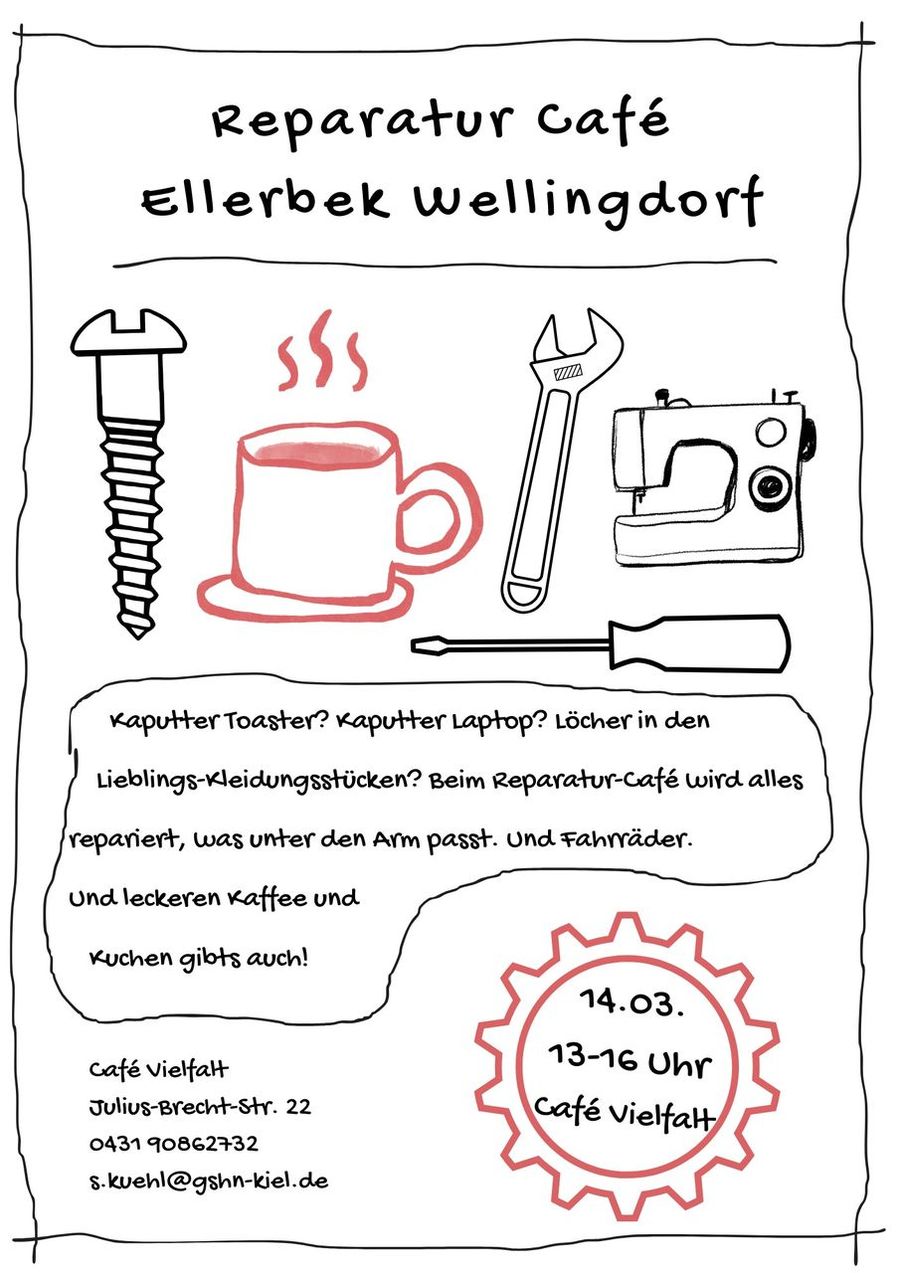 Reparatur Café
Ellerbek Wellingdorf
Kaputter Toaster? Kaputter Laptop? Löcher in den
Lieblings-Kleidungsstücken? Beim Reparatur-Café wird alles
repariert, was unter den Arm passt. Und Fahrräder.
Und leckeren Kaffee und
Kuchen gibts auch!
14.03.
13-16 Uhr
Café Vielfalt
Café Vielfalt
Julius-Brecht-Str. 22
0431 90862732
s.kuehl@gshn-kiel.de